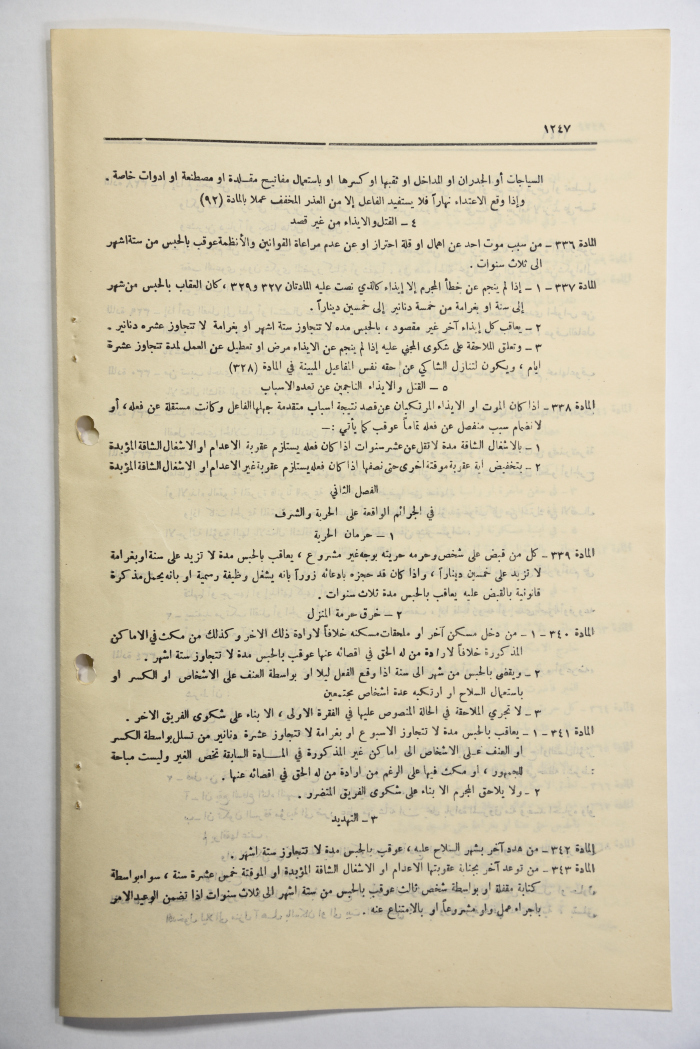 ١٢٤٧
السياجات أو الجدران او المداخل او ثقبها او كسرها او باستعمال مفاتيح مقلدة او مصطنعة او ادوات خاصة .
وإذا وقع الاعتداء نهاراً فلا يستفيد الفاعل إلا من العذر المخفف عملا بالمادة (٩٢)
٤ – القتل والايذاء من غير قصد
المادة ٣٣٦ – من سبب موت احد عن اهمال او قلة احتراز او عن عدم مراعاة القوانين والأنظمة عوقب بالحبس من ستة اشهر
الى ثلاث سنوات .
المادة ٣٣٧ – ١ – إذا لم ينجم عن خطأ المجرم إلا إيذاء كالذي نصت عليه المادتان ٣٢٧ و ٣٢٩ ، كان العقاب بالحبس من شهر
إلى سنة او بغرامة من خمسة دنانير إلى خمسين ديناراً .
٢ – يعاقب كل إيذاء آخر غير مقصود ، بالحبس مدة لا تتجاوز ستة اشهر او بغرامة لا تتجاوز عشره دنانير .
٣ – وتعلق الملاحقة على شكوى المجني عليه إذا لم ينجم عن الايذاء مرض او تعطيل عن العمل لمدة تتجاوز عشرة
ايام ، ويكون لتنازل الشاكي عن حقه نفس المفاعيل المبينة في المادة (٣٢٨)
٥ – القتل والايذاء الناجمين عن تعدد الاسباب
المادة ٣٣٨ – اذا كان الموت او الايذاء المرتكبان عن قصد نتيجة اسباب متقدمة جهلها الفاعل وكانت مستقلة عن فعله ، أو
لانضمام سبب منفصل عن فعله تماماً عوقب كما يأتي :–
١ – بالاشغال الشاقة مدة لا تقل عن عشر سنوات اذا كان فعله يستلزم عقوبة الاعدام او الاشغال الشاقة المؤبدة
٢ – بتخفيض اية عقوبة موقتة اخرى حتى نصفها اذا كان فعله يستلزم عقوبة غير الاعدام او الاشغال الشاقة المؤبدة
الفصل الثاني
في الجرائم الواقعة على الحرية والشرف
١ – حرمان الحرية
المادة ٣٣٩ – كل من قبض على شخص وحرمه حريته بوجه غير مشروع ، يعاقب بالحبس مدة لا تزيد على سنة او بغرامة
لا تزيد على خمسين ديناراً ، واذا كان قد حجزه بادعائه زوراً بانه يشغل وظيفة رسمية او بانه يحمل مذكرة
قانونية بالقبض عليه يعاقب بالحبس مدة ثلاث سنوات .
٢ – خرق حرمة المنزل
المادة ٣٤٠ – ١ – من دخل مسكن آخر او ملحقات مسكنه خلافاً لارادة ذلك الاخر وكذلك من مكث في الاماكن
المذكورة خلافاً لارادة من له الحق في اقصائه عنها عوقب بالحبس مدة لا تتجاوز ستة اشهر .
٢ – ويقضى بالحبس من شهر الى سنة اذا وقع الفعل ليلا او بواسطة العنف على الاشخاص او الكسر او
باستعمال السلاح او ارتكبه عدة اشخاص مجتمعين
٣ – لا تجري الملاحقة في الحالة المنصوص عليها في الفقرة الاولى ، الا بناء على شكوى الفريق الاخر .
المادة ٣٤١ – ١ – يعاقب بالحبس مدة لا تتجاوز الاسبوع او بغرامة لا تتجاوز عشرة دنانير من تسلل بواسطة الكسر
او العنف على الاشخاص الى اماكن غير المذكورة في المادة السابقة تخص الغير وليست مباحة
للجمهور ، او مكث فيها على الرغم من ارادة من له الحق في اقصائه عنها .
٢ – ولا يلاحق المجرم الا بناء على شكوى الفريق المتضرر .
٣ – التهديد
المادة ٣٤٢ – من هدد آخر بشهر السلاح عليه ، عوقب بالحبس مدة لا تتجاوز ستة اشهر .
المادة ٣٤٣ – من توعد آخر بجناية عقوبتها الاعدام او الاشغال الشاقة المؤبدة او الموقتة خمس عشرة سنة ، سواء بواسطة
كتابة مغفلة او بواسطة شخص ثالث عوقب بالحبس من ستة اشهر الى ثلاث سنوات اذا تضمن الوعيد الامر
باجراء عمل ولو مشروعاً او بالامتناع عنه .